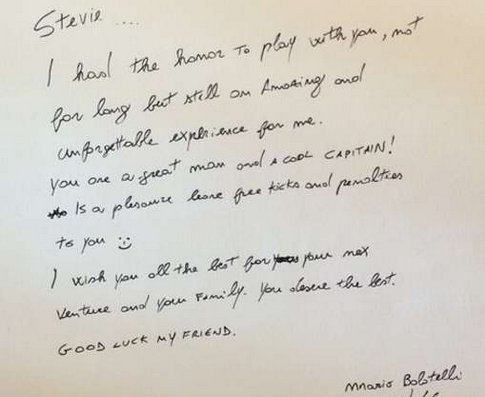 Stevie ....
I had the honor to play with you, not
for long but still an Amazing and
unforgettable experience for me.
you are a great man and a COOL CAPITAIN!
Is a pleasure leave free kicks and penalties
to you :)
I wish you all the best for your nex
venture and your Family. You desere the best.
GOOD LUCK MY FRIEND.
Mario Balotelli